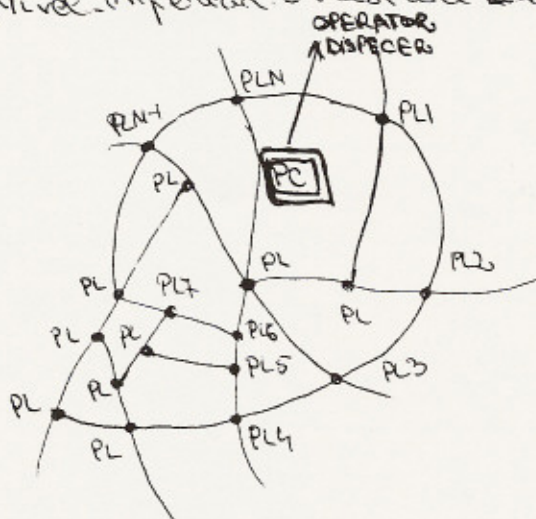 OPERATOR
DISPECER
PLN
PLN-1
PL1
PC
PL
PL
PL2
PL
PL7
PL
PL
PL6
PL
PL5
PL3
PL
PL
PL4
PL